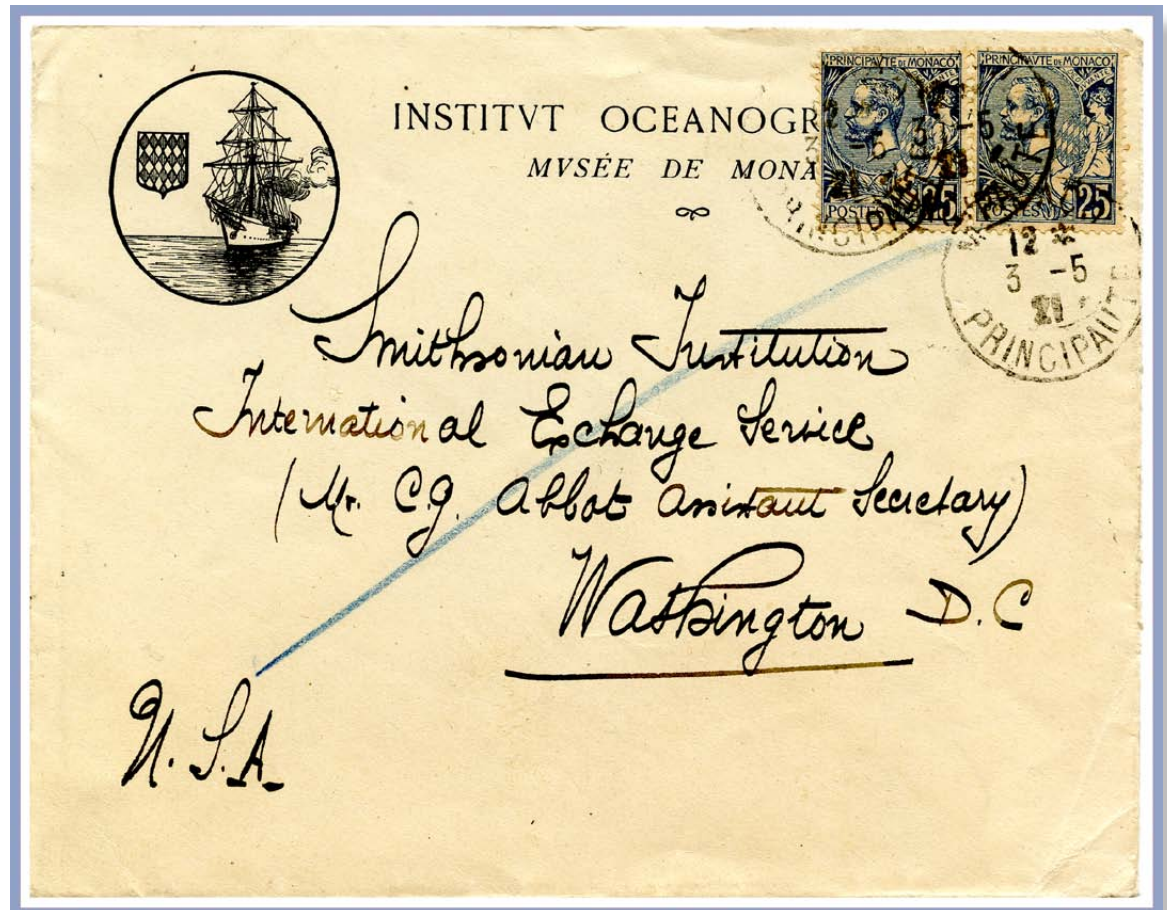 INSTITVT OCEANOGR
MVSÉE DE MONA
PRINCIPAVTE DE MONACO
POSTES 25
PRINCIPAVTE DE MONACO
POSTES 25
12 *
3 -5
21
PRINCIPAUTÉ
Smithsonian Institution
International Exchange Service
(Mr. C.G. Abbot Assistant Secretary)
Washington D.C
U.S.A.